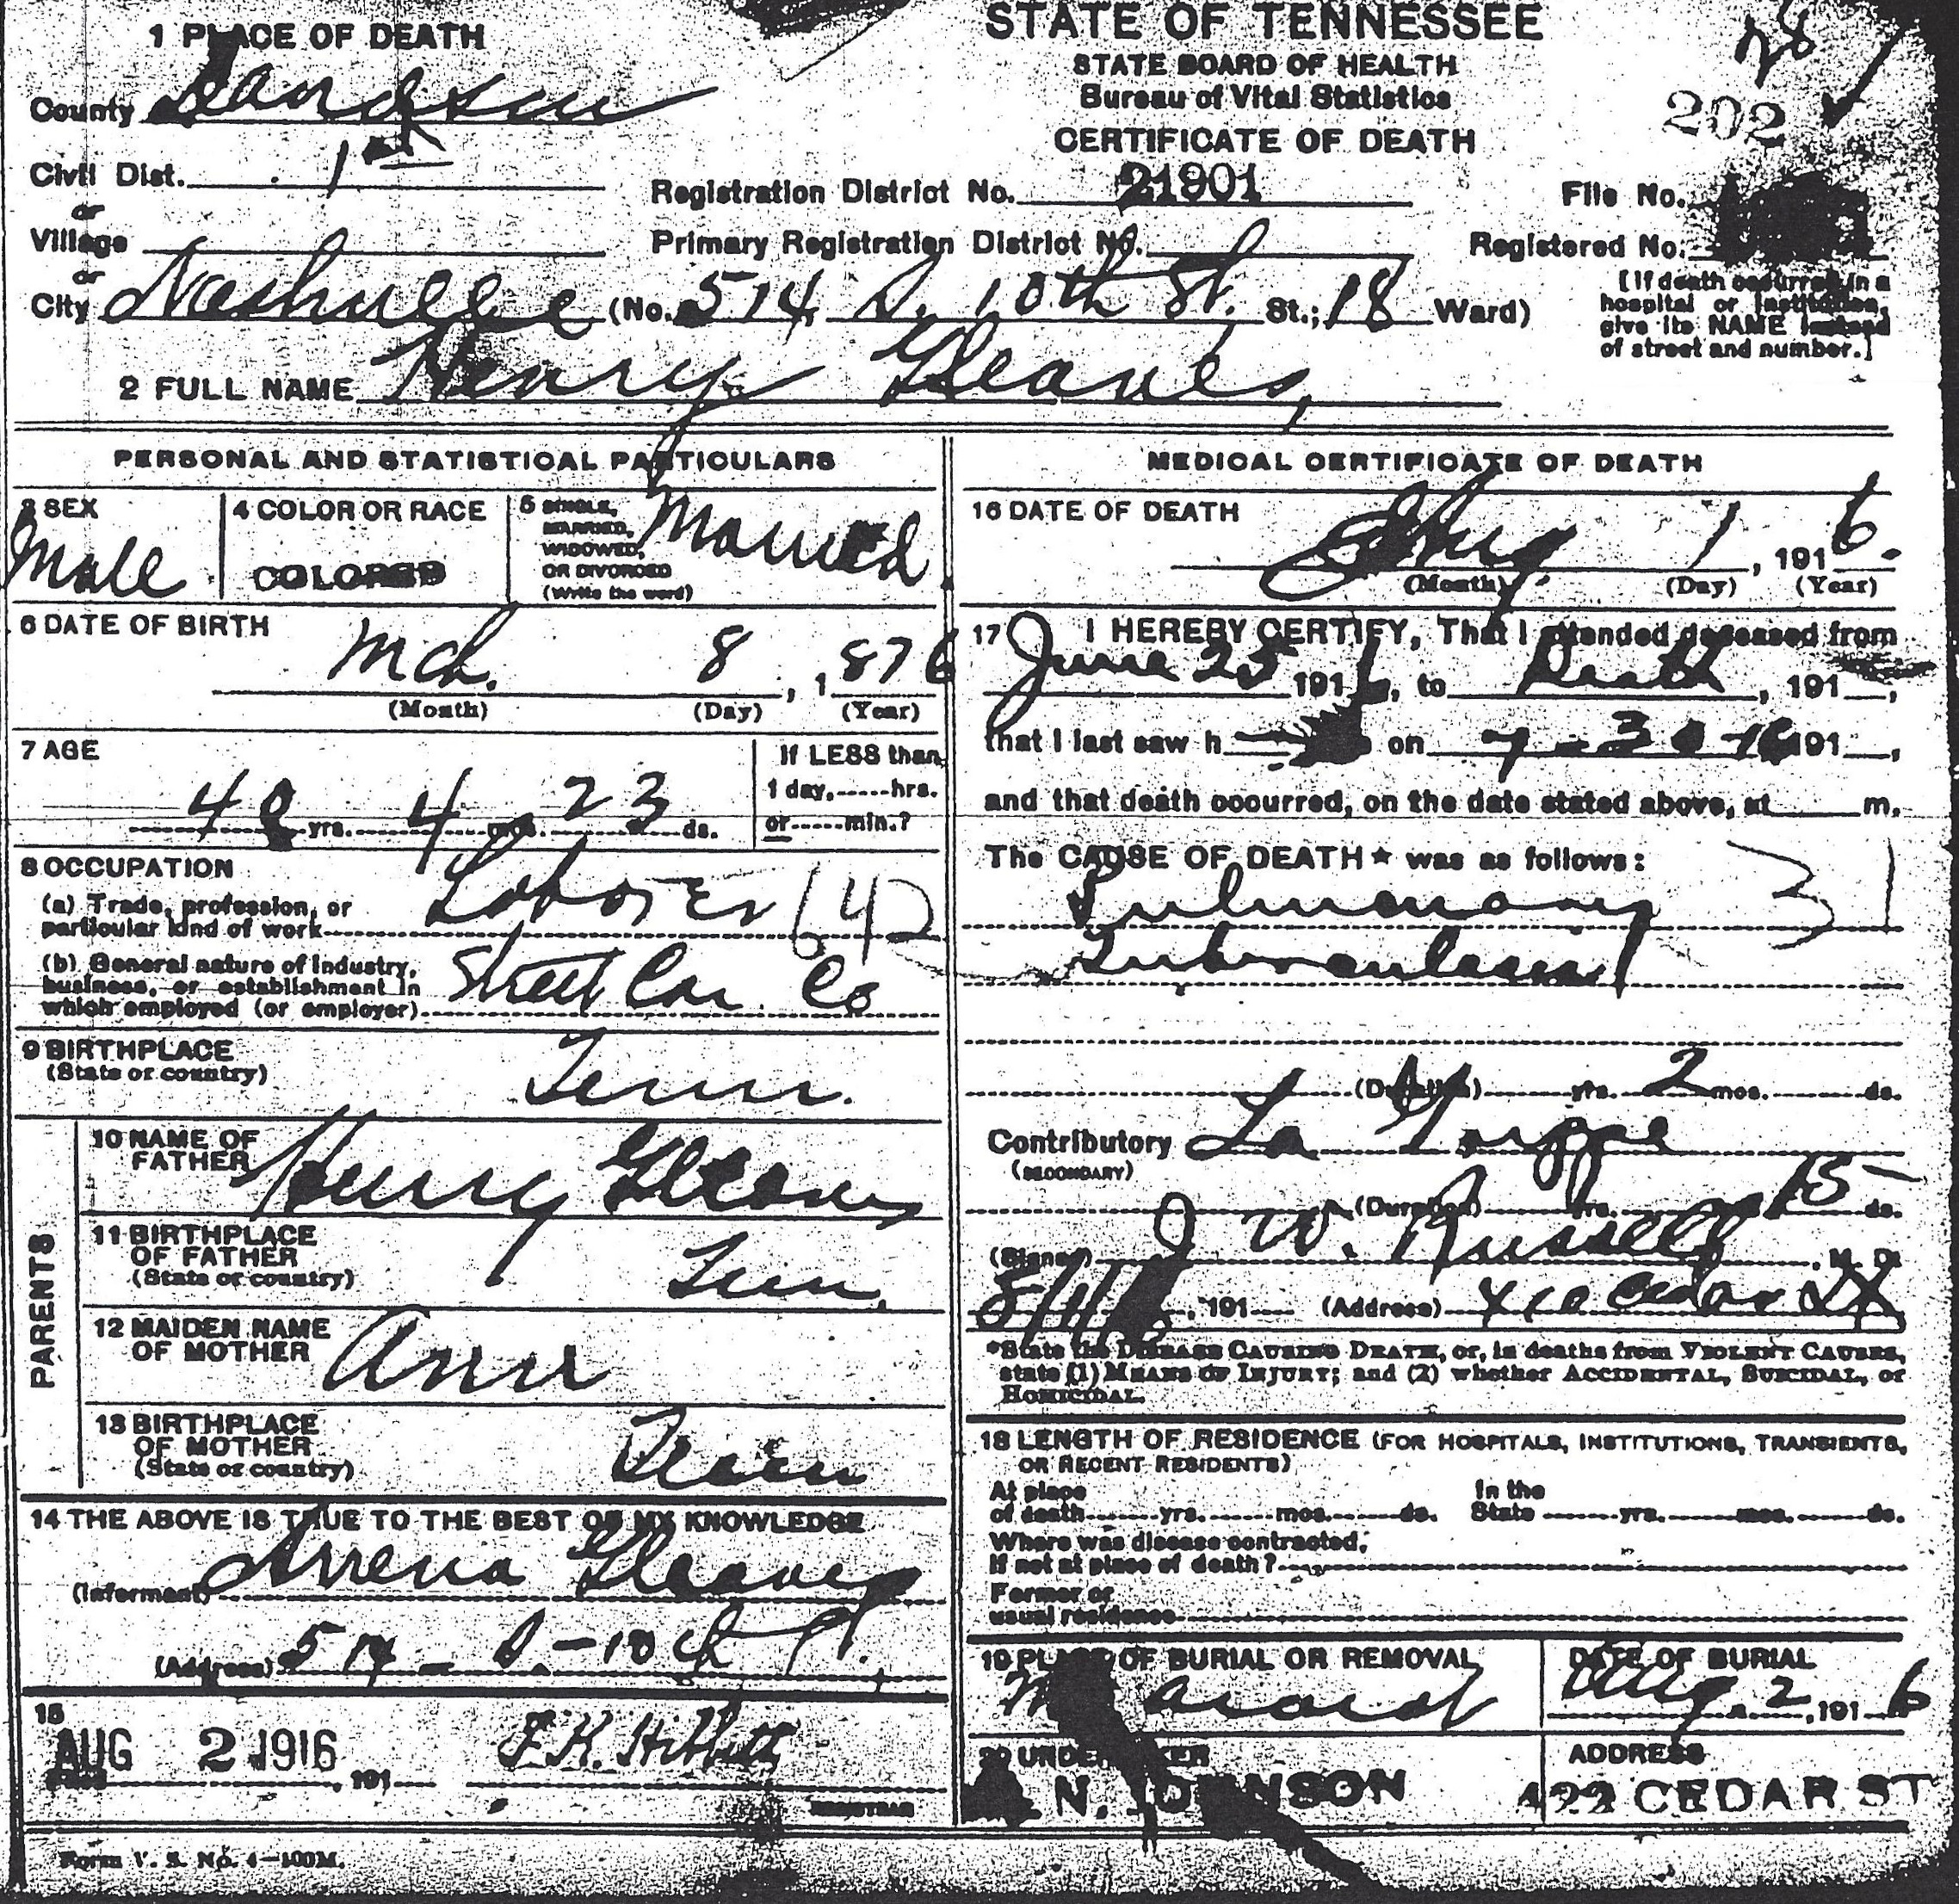 STATE OF TENNESSEE
STATE BOARD OF HEALTH
Bureau of Vital Statistics
CERTIFICATE OF DEATH
202
1 PLACE OF DEATH
County Davidson
Civil Dist. 1st
or
Village
or
City Nashville (No. 514, S. 10th St. St.; 18 Ward)
Registration District No. 21901
File No.
Primary Registration District No.
Registered No.
[If death occurred in a
hospital or institution,
give its NAME instead
of street and number.]
2 FULL NAME Henry Gleaves,
PERSONAL AND STATISTICAL PARTICULARS
3 SEX
Male
4 COLOR OR RACE
COLORED
5 SINGLE,
MARRIED,
WIDOWED,
OR DIVORCED
(Write the word)
Married.
6 DATE OF BIRTH
Mch. 8, 1876
(Month) (Day) (Year)
7 AGE
40 yrs. 4 mos. 23 ds.
If LESS than
1 day,......hrs.
or......min.?
8 OCCUPATION
(a) Trade, profession, or
particular kind of work Laborer 642
(b) General nature of industry,
business, or establishment in
which employed (or employer) Street Car Co
9 BIRTHPLACE
(State or country) Tenn.
PARENTS
10 NAME OF
FATHER Henry Gleaves
11 BIRTHPLACE
OF FATHER
(State or country) Tenn.
12 MAIDEN NAME
OF MOTHER Ann
13 BIRTHPLACE
OF MOTHER
(State or country) Tenn
14 THE ABOVE IS TRUE TO THE BEST OF MY KNOWLEDGE
(Informant) Arrena Gleaves
(Address) 514 - S. - 10th St.,
15
AUG 2 1916, 191
REGISTRAR
Form V. S. No. 4—100M.
MEDICAL CERTIFICATE OF DEATH
16 DATE OF DEATH
Aug 1, 1916.
(Month) (Day) (Year)
17 I HEREBY CERTIFY, That I attended deceased from
June 25 1916, to Death, 191 ,
that I last saw h on 7-30-16 191 ,
and that death occurred, on the date stated above, at m.
The CAUSE OF DEATH* was as follows: 31
Pulmonary
Tuberculosis
(Duration) yrs. 2 mos. ds.
Contributory La Grippe
(SECONDARY)
(Duration) yrs. mos. 15 ds.
(Signed) J W. Russell, M. D.
191 (Address) Cedar St
*State the DISEASE CAUSING DEATH, or, in deaths from VIOLENT CAUSES,
state (1) MEANS OF INJURY; and (2) whether ACCIDENTAL, SUICIDAL, or
HOMICIDAL.
18 LENGTH OF RESIDENCE (FOR HOSPITALS, INSTITUTIONS, TRANSIENTS,
OR RECENT RESIDENTS)
At place
of death yrs. mos. ds.
In the
State yrs. mos. ds.
Where was disease contracted,
if not at place of death?
Former or
usual residence
19 PLACE OF BURIAL OR REMOVAL
DATE OF BURIAL
Aug. 2, 1916
20 UNDERTAKER
N. JOHNSON
ADDRESS
422 CEDAR ST